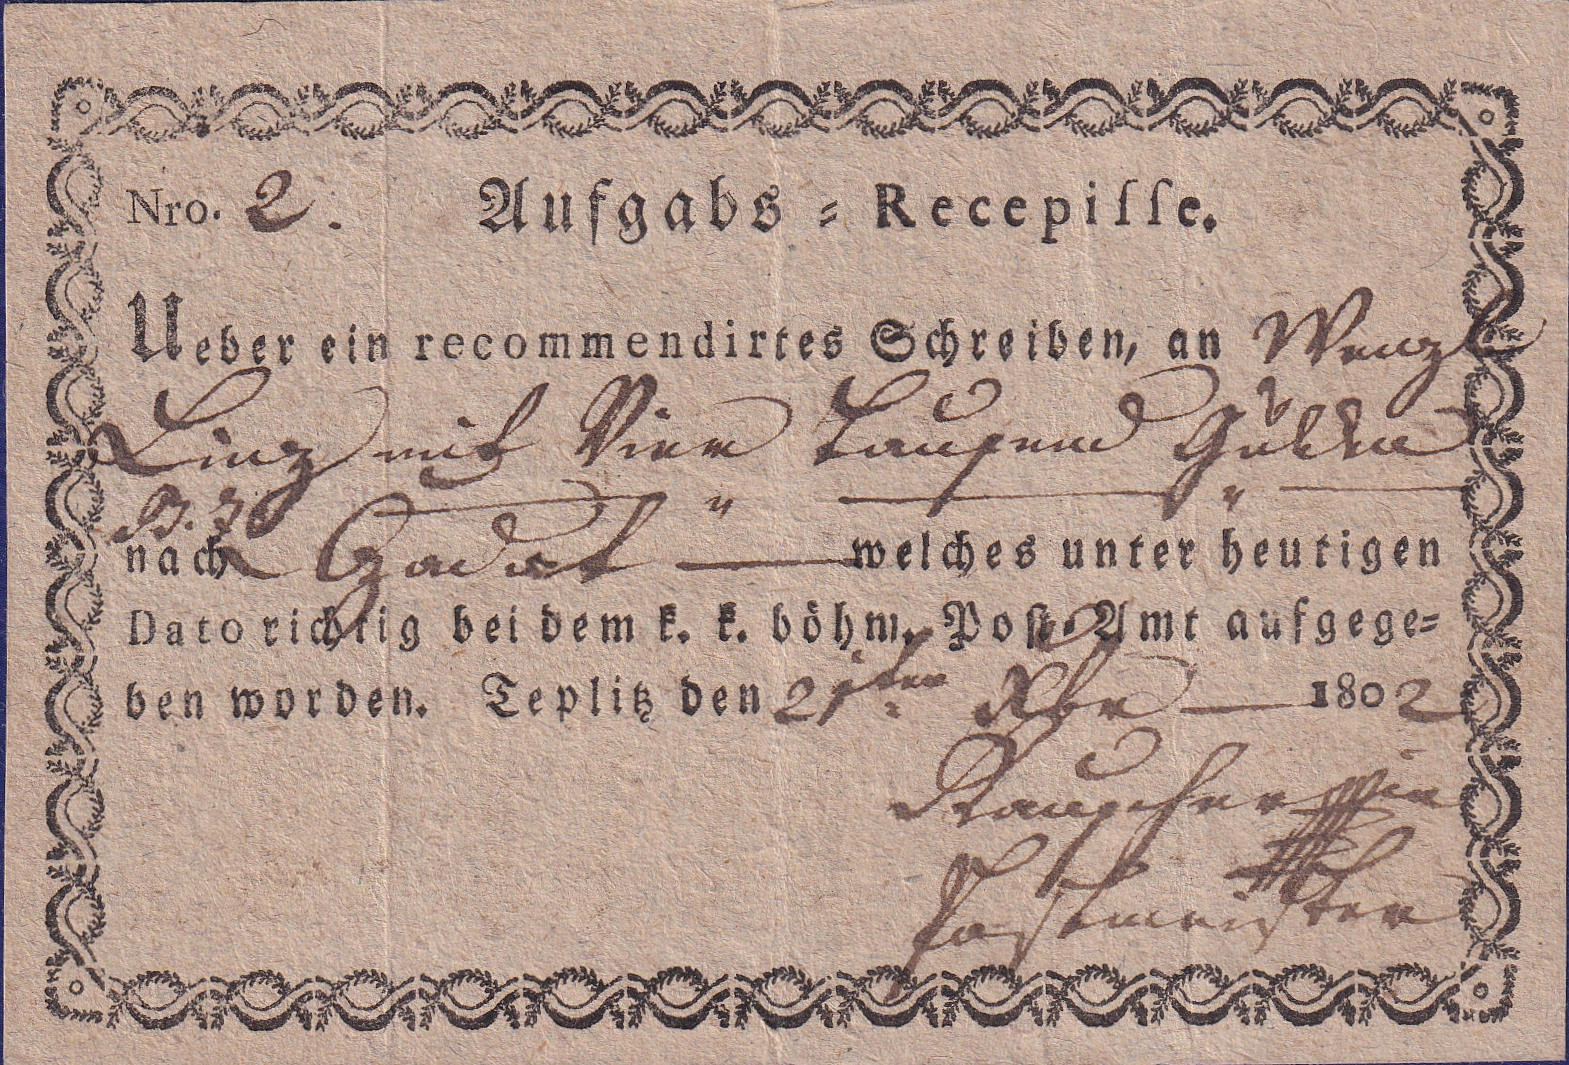 Nro. 2. Aufgabs = Recepisse.
Ueber ein recommendirtes Schreiben, an Wenzl
Linz mit Vier Tausend Gulden
nach welches unter heutigen
Dato richtig bei dem k. k. böhm. Post-Amt aufgege=
ben worden. Teplitz den 21ten Xbr 1802
Postmeister